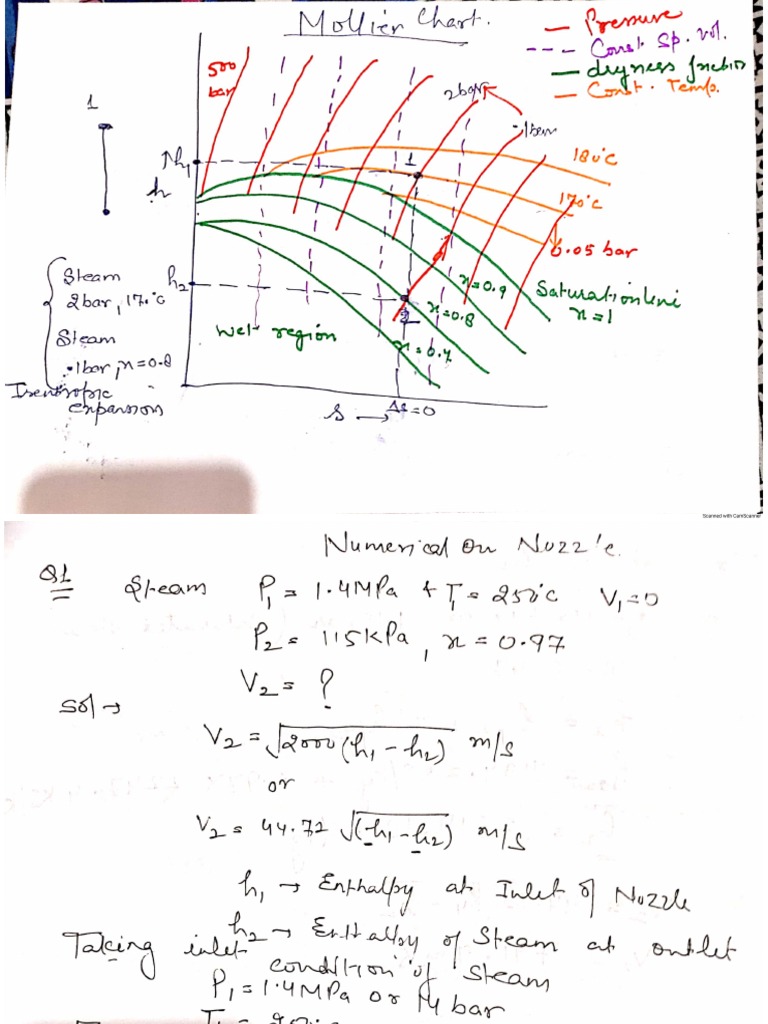 Mollier Chart.
Pressure
Const Sp. vol.
dryness fraction
Const. Temp.
500 bar
2 bar
.1 bar
1
h1
1
180°C
h
170°C
0.05 bar
Steam
2bar, 170°C
h2
x=0.9
Saturation line
x=1
x=0.8
2
Steam
.1bar, x=0.8
wet region
x=0.7
Isentropic expansion
s → Δs=0
Scanned with CamScanner
Numerical on Nozzle.
Q1 Steam P1 = 1.4MPa & T1 = 250°C V1=0
P2 = 115kPa, x = 0.97
V2 = ?
Sol →
V2 = √2000(h1-h2) m/s
or
V2 = 44.72 √(h1-h2) m/s
h1 → Enthalpy at Inlet of Nozzle
h2 → Enthalpy of Steam at outlet
Taking inlet condition of steam
P1 = 1.4MPa or 14 bar